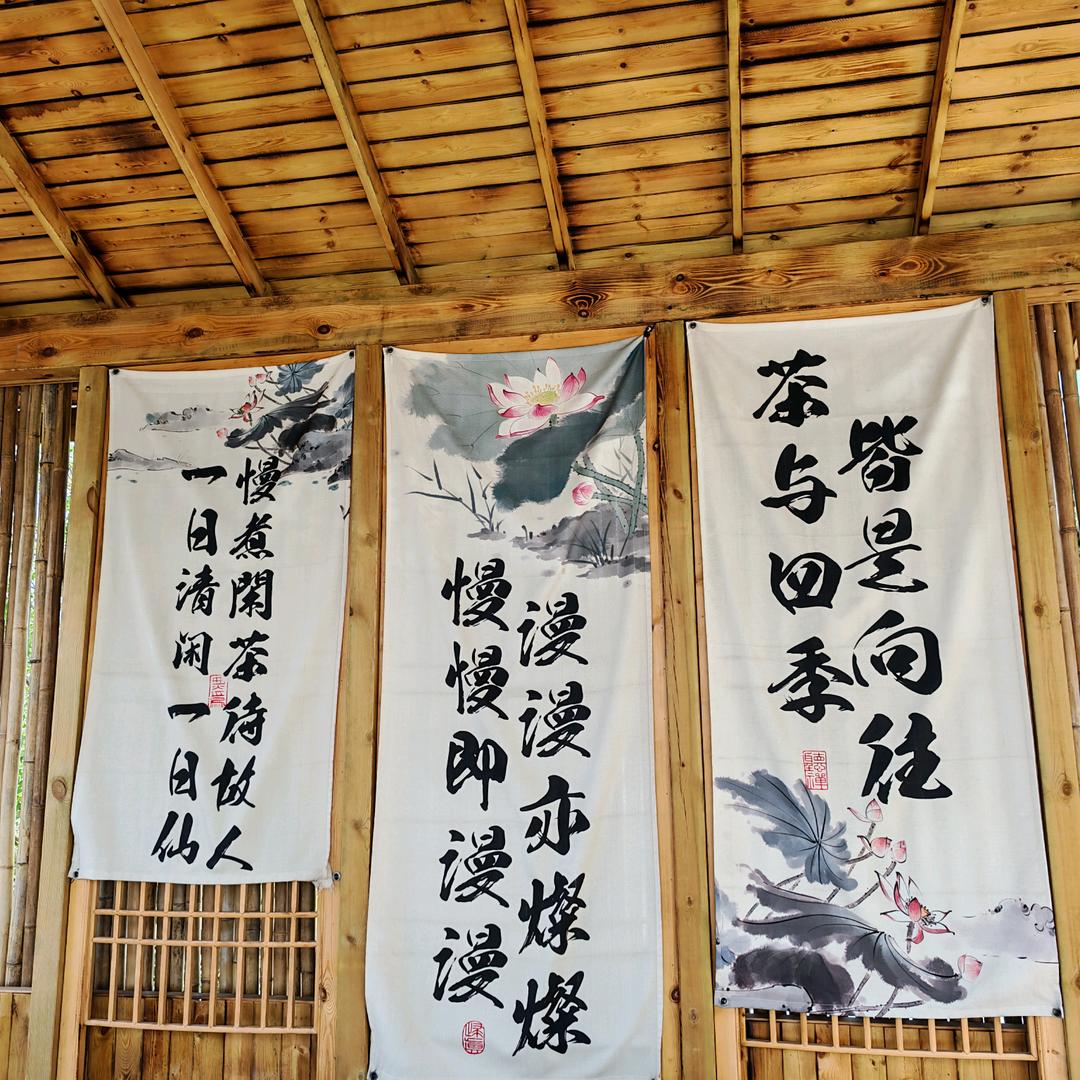 慢煮閑茶待故人
一日清闲一日仙
慢慢即漫漫
漫漫亦燦燦
茶与四季
皆是向往
聽禪